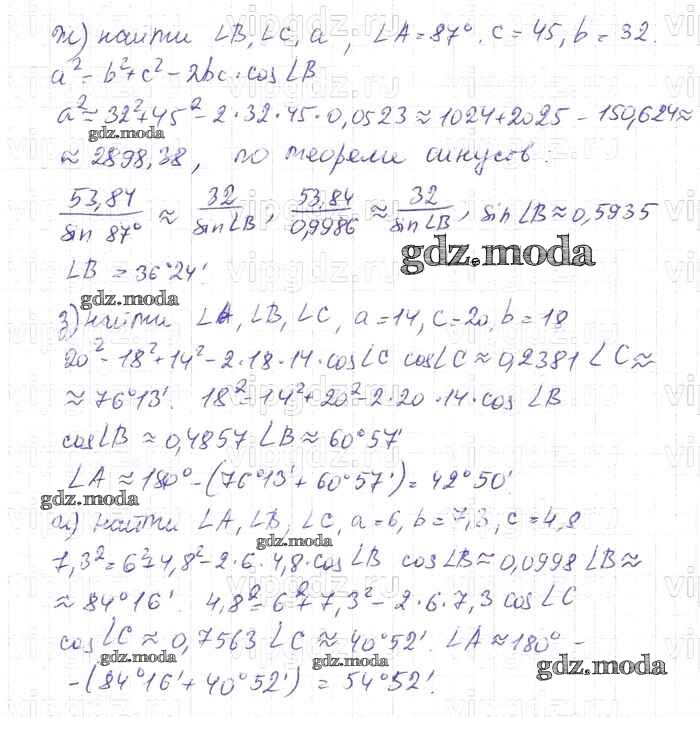 ж) найти ∠B, ∠C, a, ∠A = 87°. c = 45, b = 32.
a² = b² + c² - 2bc · cos∠B
a² ≈ 32² + 45² - 2 · 32 · 45 · 0,0523 ≈ 1024 + 2025 - 150,624 ≈
gdz.moda
≈ 2898,38, по теореме синусов:
53,84/sin 87° ≈ 32/sin∠B, 53,84/0,9986 ≈ 32/sin∠B, sin∠B ≈ 0,5935
gdz.moda
∠B = 36°24'.
gdz.moda
з) найти ∠A, ∠B, ∠C, a = 14, c = 20, b = 18
20² - 18² + 14² - 2 · 18 · 14 · cos∠C cos∠C ≈ 0,2381 ∠C ≈
≈ 76°13'. 18² - 14² + 20² - 2 · 20 · 14 · cos∠B
cos∠B ≈ 0,4857 ∠B ≈ 60°57'
∠A ≈ 180° - (76°13' + 60°57') = 42°50'
gdz.moda
и) найти ∠A, ∠B, ∠C, a = 6, b = 7,3, c = 4,8
gdz.moda
7,3² = 6² + 4,8² - 2 · 6 · 4,8 · cos∠B cos∠B ≈ 0,0998 ∠B ≈
≈ 84°16'. 4,8² = 6² + 7,3² - 2 · 6 · 7,3 cos∠C
gdz.moda
cos∠C ≈ 0,7563 ∠C ≈ 40°52'. ∠A ≈ 180° -
gdz.moda gdz.moda
- (84°16' + 40°52') = 54°52'.
gdz.moda